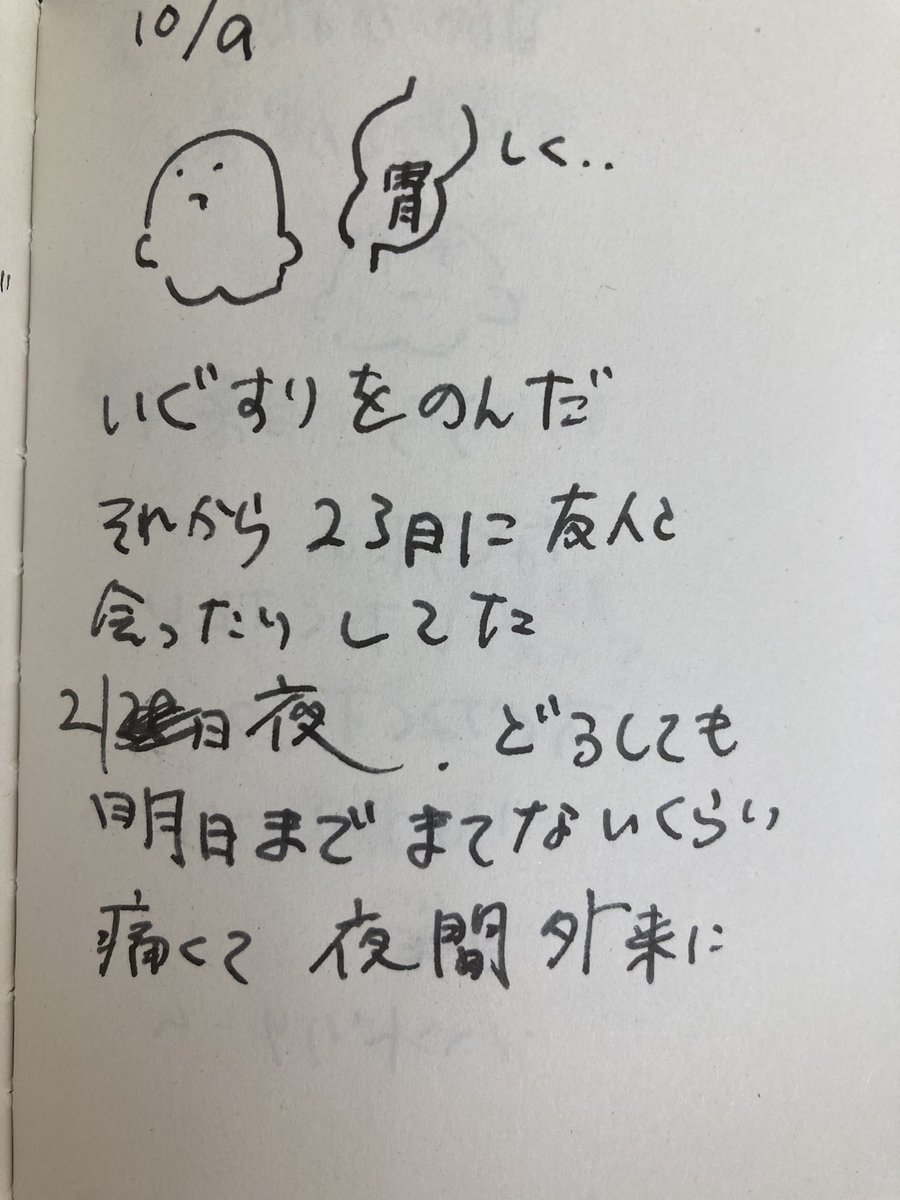 10/a
胃 しく..
いぐすりをのんだ
それから 23日に 友人と
会ったり してた
日夜. どうしても
明日まで まてないくらい
痛くて 夜間 外来に